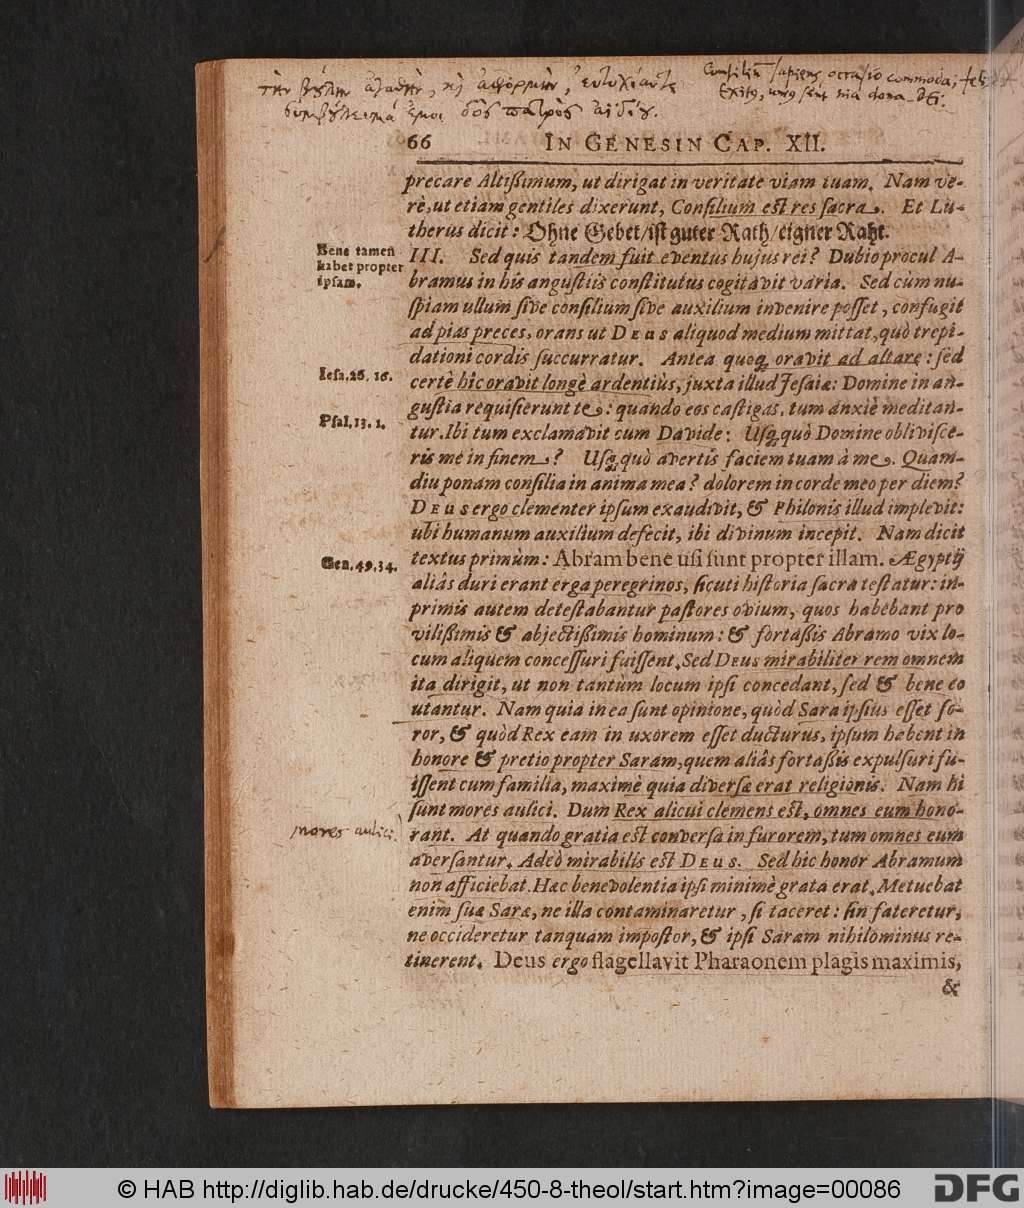 Consiliū sapiens, occasio commoda,
66 IN GENESIN CAP. XII.
precare Altißimum, ut dirigat in veritate viam tuam. Nam ve-
rè, ut etiam gentiles dixerunt, Consilium est res sacra. Et Lu-
therus dicit: Ohne Gebet/ist guter Rath/eigner Raht.
Bene tamen
habet propter
ipsam.
III. Sed quis tandem fuit eventus hujus rei? Dubio procul A-
bramus in his angustiis constitutus cogitavit varia. Sed cùm nu-
spiam ullum sive consilium sive auxilium invenire posset, confugit
ad pias preces, orans ut DEUS aliquod medium mittat, quò trepi-
dationi cordis succurratur. Antea quoq; oravit ad altare: sed
Iesa. 26. 16.
certè hîc oravit longè ardentiùs, juxta illud Jesaiæ: Domine in an-
gustia requisierunt te: quando eos castigas, tum anxiè meditan-
Psal. 13. 1.
tur. Ibi tum exclamavit cum Davide: Usq; quò Domine oblivisce-
ris me in finem? Usq; quò avertis faciem tuam à me. Quam-
diu ponam consilia in anima mea? dolorem in corde meo per diem?
DEUS ergo clementer ipsum exaudivit, & Philonis illud implevit:
ubi humanum auxilium defecit, ibi divinum incepit. Nam dicit
textus primùm: Abram bene usi sunt propter illam. Ægyptij
Gen. 49. 34.
aliâs duri erant erga peregrinos, sicuti historia sacra testatur: in-
primis autem detestabantur pastores ovium, quos habebant pro
vilißimis & abjectißimis hominum: & fortaßis Abramo vix lo-
cum aliquem concessuri fuissent. Sed DEUS mirabiliter rem omnem
ita dirigit, ut non tantùm locum ipsi concedant, sed & bene eo
utantur. Nam quia in ea sunt opinione, quòd Sara ipsius esset so-
ror, & quòd Rex eam in uxorem esset ducturus, ipsum habent in
honore & pretio propter Saram, quem aliâs fortaßis expulsuri fu-
issent cum familia, maximè quia diversæ erat religionis. Nam hi
sunt mores aulici. Dum Rex alicui clemens est, omnes eum hono-
mores aulici.
rant. At quando gratia est conversa in furorem, tum omnes eum
aversantur. Adeò mirabilis est DEUS. Sed hic honor Abramum
non afficiebat. Hæc benevolentia ipsi minimè grata erat. Metuebat
enim suæ Saræ, ne illa contaminaretur, si taceret: sin fateretur,
ne occideretur tanquam impostor, & ipsi Saram nihilominus re-
tinerent. Deus ergo flagellavit Pharaonem plagis maximis,
&
© HAB http://diglib.hab.de/drucke/450-8-theol/start.htm?image=00086
DFG